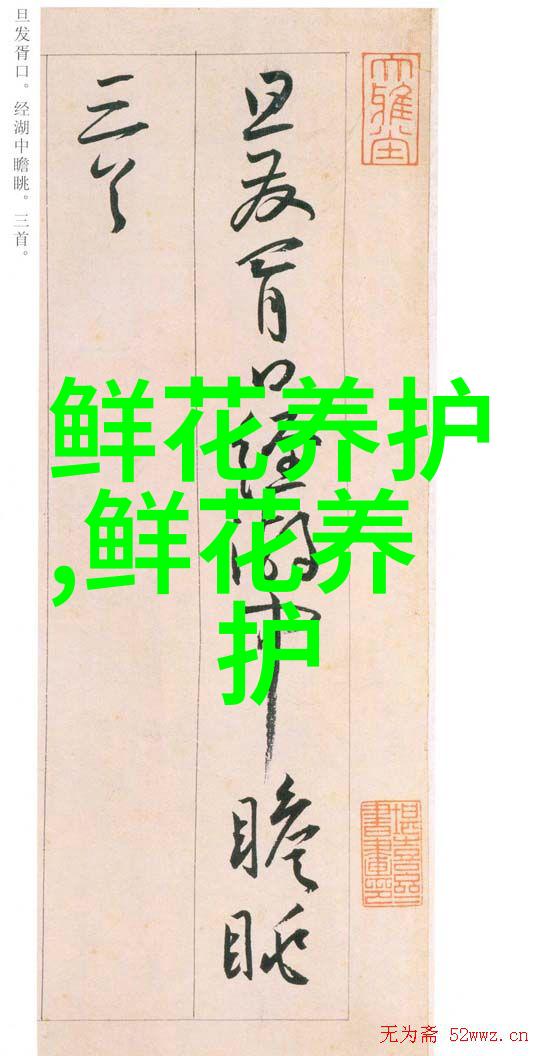 旦发胥口。经湖中瞻眺。三首。
大雅堂
旦发胥口经湖中瞻眺
三首
鲜花养护
,鲜花养
护
无为斋 52wwz.cn